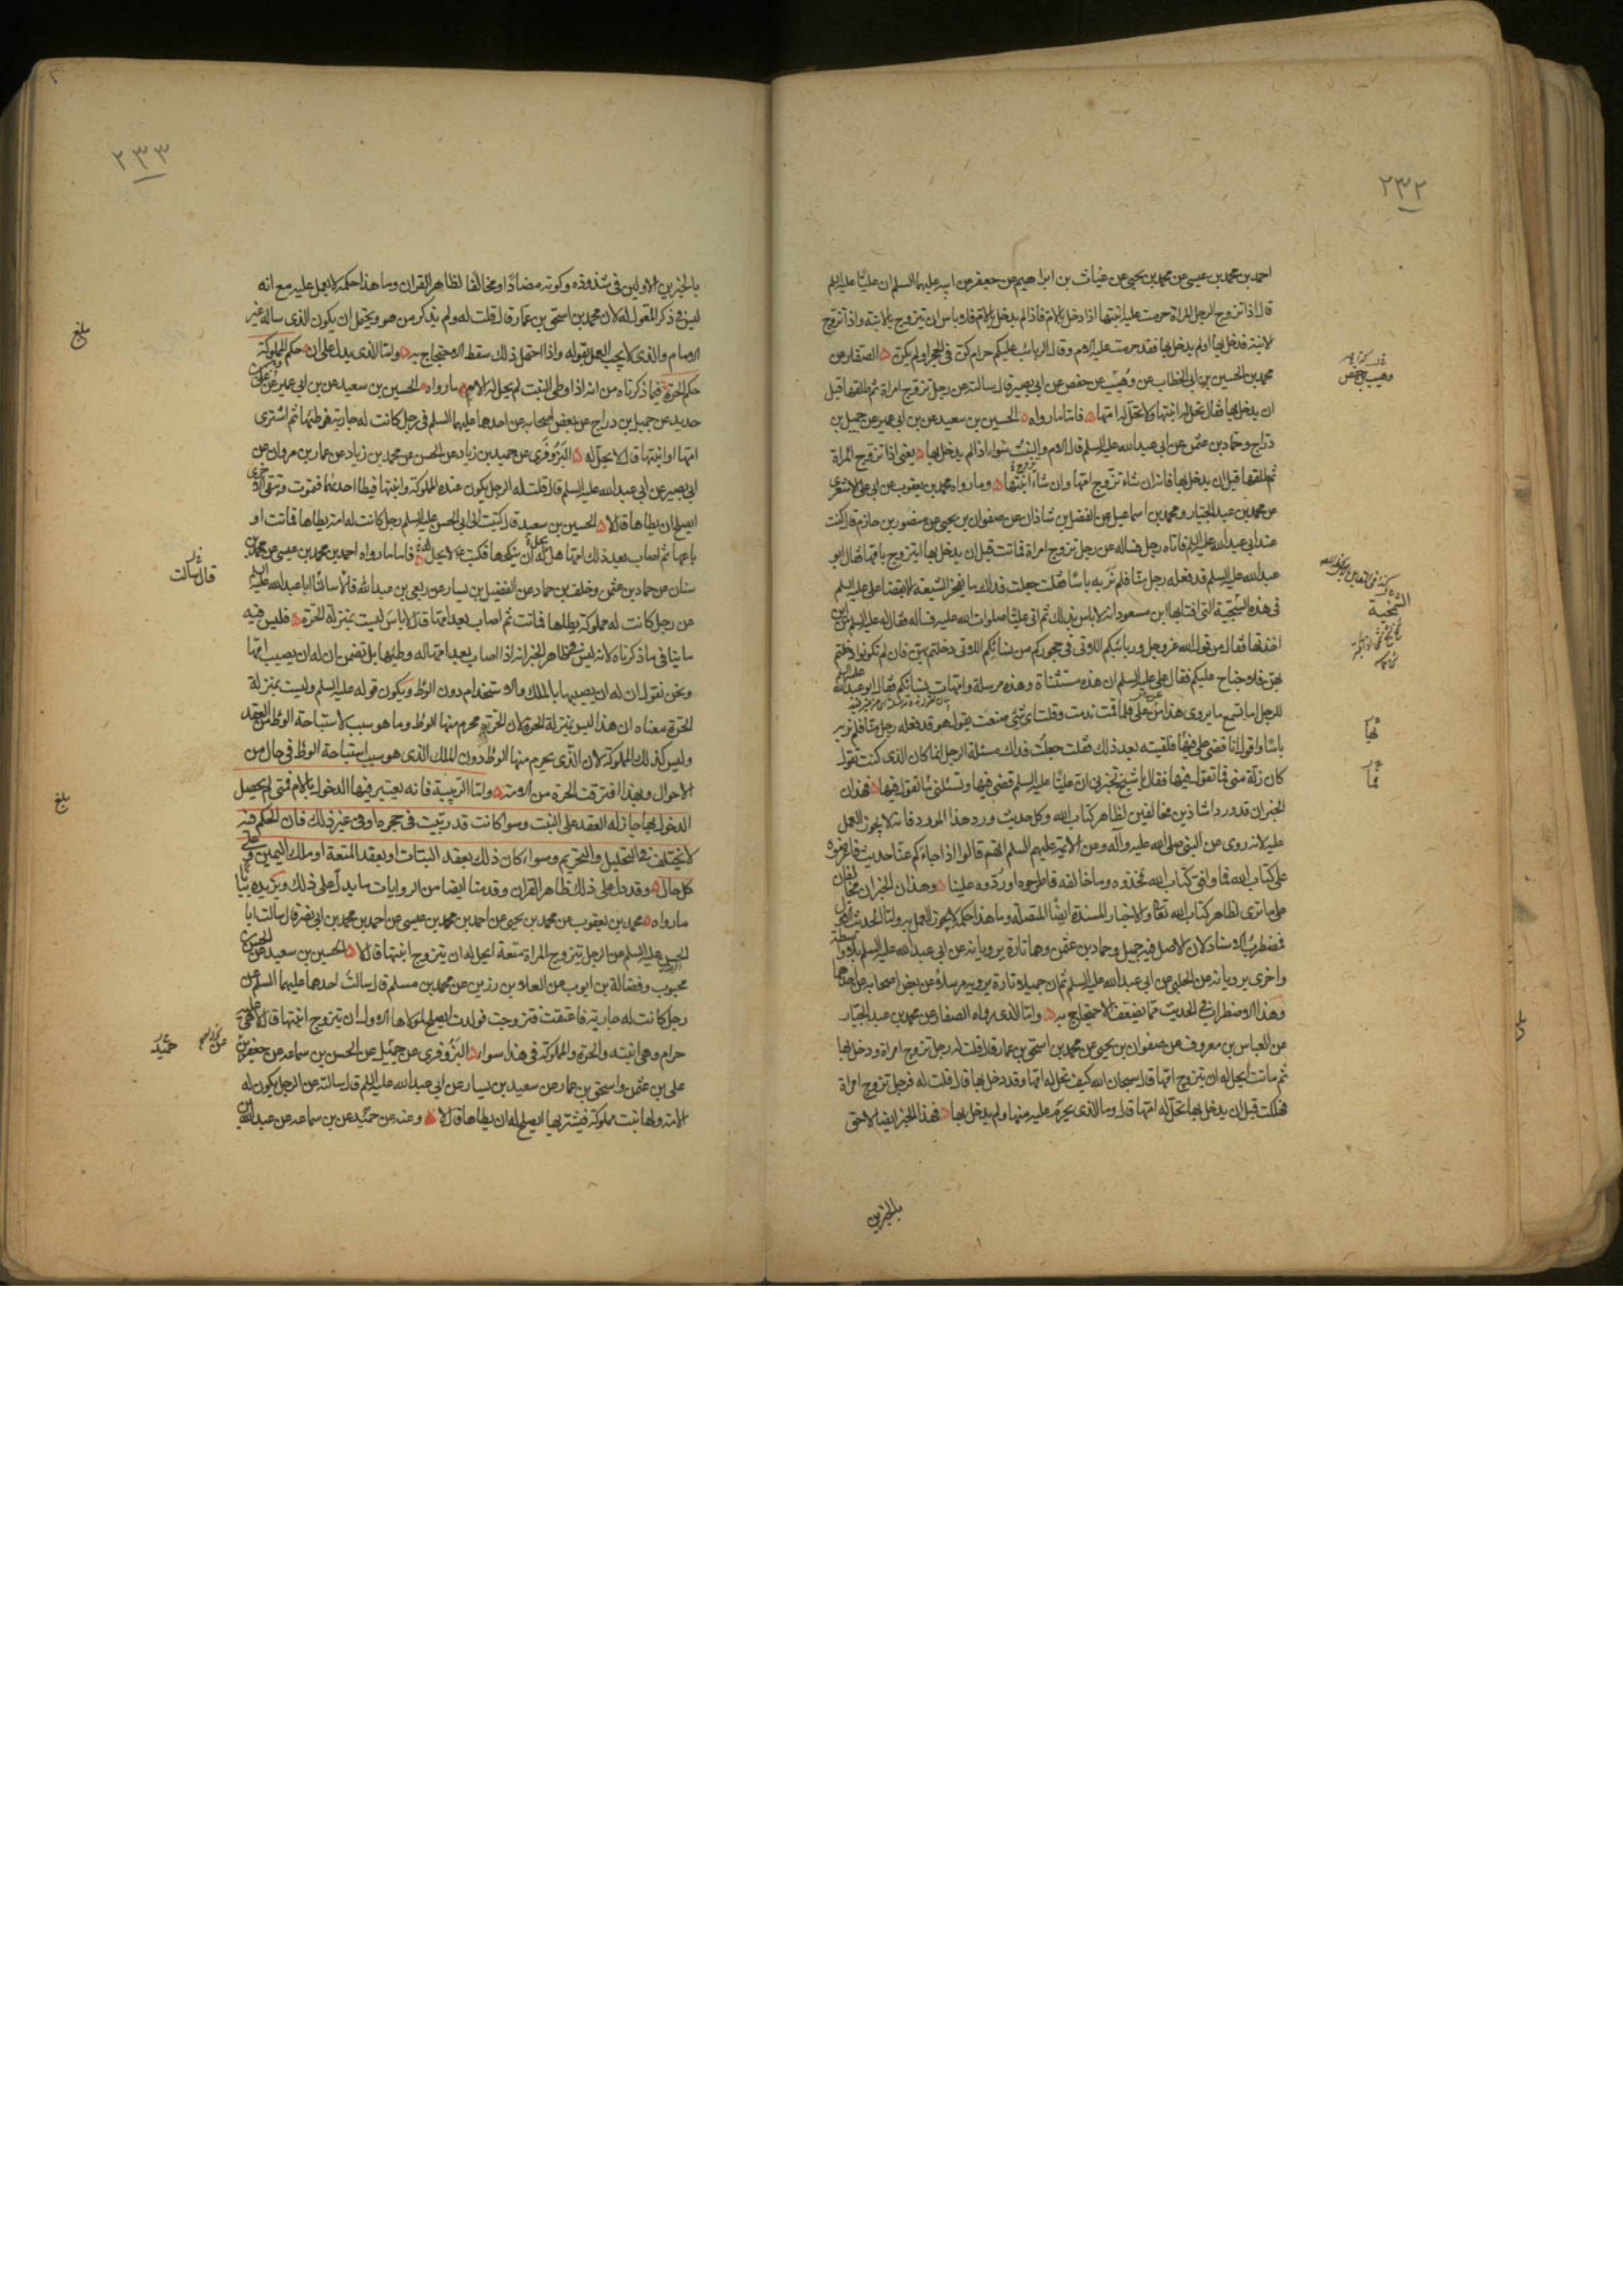 ٢٣٢
احمد بن محمد بن عيسى عن محمد بن يحيى عن غياث بن ابراهيم عن جعفر عن ابيه عليهما السلم ان عليًا عليه السلم
قال اذا تزوج الرجل المراة حرمت عليه ابنتها اذا دخل بالام فاذا لم يدخل بالام فلا باس ان يتزوج بالابنة واذا تزوج
الابنة فدخل بها او لم يدخل بها فقد حرمت عليه الام وقال الربائب عليكم حرام كن في الحجر او لم يكن الصفار عن
محمد بن الحسين بن ابي الخطاب عن وهيب عن حفص عن ابي بصير قال سالته عن رجل تزوج امراة ثم طلقها قبل
ان يدخل بها فقال تحل له ابنتها ولا تحل له امها فاما ما رواه الحسين بن سعيد عن بن ابي عمير عن جميل بن
دراج وحماد بن عثمن عن ابي عبد الله عليه السلم قال الام والبنت سواء اذا لم يدخل بها يعني اذا تزوج المراة
ثم طلقها قبل ان يدخل بها فانه ان شاء تزوج امها وان شاء ابنتها وما رواه محمد بن يعقوب عن ابي علي الاشعري
عن محمد بن عبد الجبار ومحمد بن اسماعيل عن الفضل بن شاذان عن صفوان بن يحيى عن منصور بن حازم قال كنت
عند ابي عبد الله عليه السلم فاتاه رجل فساله عن رجل تزوج امراة فماتت قبل ان يدخل بها ايتزوج بامها فقال ابو
عبد الله عليه السلم قد فعله رجل منا فلم نر به باسا فقلت جعلت فداك ما تفخر الشيعة الا بقضاء علي عليه السلم
في هذه الشمخية التي افتاها ابن مسعود انه لا باس بذلك ثم اتى عليًا صلوات الله عليه فساله فقال له عليه السلم من اين
اخذتها فقال من قول الله عز وجل وربائبكم اللاتي في حجوركم من نسائكم اللاتي دخلتم بهن فان لم تكونوا دخلتم
بهن فلا جناح عليكم فقال علي عليه السلم ان هذه مستثناة وهذه مرسلة وامهات نسائكم فقال ابو عبد الله عليه السلم
للرجل اما تسمع ما يروي هذا عن علي فلما قمت ندمت وقلت اي شيء صنعت يقول هو قد فعله رجل منا فلم نر به
باسا واقول انا قضى علي فيها فلقيته بعد ذلك فقلت جعلت فداك مسئلة الرجل انما كان الذي كنت تقول
كان زلة مني فما تقول فيها فقال يا شيخ تخبرني ان عليًا عليه السلم قضى فيها وتسئلني ما تقول فيها فهذان
الخبران قد وردا شاذين مخالفين لظاهر كتاب الله وكل حديث ورد هذا المورد فانه لا يجوز العمل
عليه لانه روي عن النبي صلى الله عليه وآله وعن الائمة عليهم السلم انهم قالوا اذا جاءكم عنا حديث فاعرضوه
على كتاب الله فما وافق كتاب الله فخذوه وما خالفه فاطرحوه او ردوه علينا وهذان الخبران مخالفان
على ما ترى لظاهر كتاب الله تعالى والاخبار المسندة ايضًا المتصلة وما هذا حكمه لا يجوز العمل به واما الحديث الاول
فمضطرب الاسناد لان الاصل فيه جميل وحماد بن عثمن وهما تارة يرويانه عن ابي عبد الله عليه السلم بلا واسطة
واخرى يرويانه عن الحلبي عن ابي عبد الله عليه السلم ثم ان جميلا تارة يرويه مرسلا عن بعض اصحابه عن احدهما
وهذا الاضطراب في الحديث مما يضعف الاحتجاج به واما الذي رواه الصفار عن محمد بن عبد الجبار
عن العباس بن معروف عن صفوان بن يحيى عن محمد بن اسحق بن عمار قال قلت له رجل تزوج امراة ودخل بها
ثم ماتت ايحل له ان يتزوج امها قال سبحان الله كيف تحل له امها وقد دخل بها قال قلت له فرجل تزوج امراة
فهلكت قبل ان يدخل بها تحل له امها قال وما الذي يحرم عليه منها ولم يدخل بها فهذا الخبر ايضا لاحق
بالخبرين
وهيب بن حفص
الشمخية
بلغ
٢٣٣
بالخبرين الاولين في شذوذه وكونه مضادًا او مخالفًا لظاهر القران وما هذا حكمه لا يعمل عليه مع انه
ليس في ذكر المقول له لان محمد بن اسحق بن عمار قال قلت له ولم يذكر من هو ويحتمل ان يكون الذي ساله غير
الامام والذي لا يجب العمل بقوله واذا احتمل ذلك سقط الاحتجاج به واما الذي يدل على ان حكم المملوكة
حكم الحرة فيما ذكرناه من انه اذا وطى البنت لم يحل له الام ما رواه الحسين بن سعيد عن بن ابي عمير وعلي بن
حديد عن جميل بن دراج عن بعض اصحابه عن احدهما عليهما السلم في رجل كانت له جارية فوطئها ثم اشترى
امها او ابنتها قال لا يحل له البزوفري عن حميد بن زياد عن الحسن عن محمد بن زياد عن عمار بن مروان عن
ابي بصير عن ابي عبد الله عليه السلم قال قلت له الرجل يكون عنده المملوكة وابنتها فيطا احدهما فتموت وتبقى الاخرى
ايصلح ان يطاها قال لا الحسين بن سعيد قال كتبت الى ابي الحسن عليه السلم رجل كانت له امة يطاها فماتت او
باعها ثم اصاب بعد ذلك امها هل له ان ينكحها فكتب لا يحل له فاما ما رواه احمد بن محمد بن عيسى عن محمد بن
سنان عن حماد بن عثمن وخلف بن حماد عن الفضيل بن يسار عن ربعي بن عبد الله قالا سالنا ابا عبد الله عليه السلم
عن رجل كانت له مملوكة يطاها فماتت ثم اصاب بعد امها قال لا باس ليست بمنزلة الحرة فليس فيه
ما ينافي ما ذكرناه لانه ليس في ظاهر الخبر انه اذا اصاب بعد امها له وطئها بل تضمن ان له ان يصيب امها
ونحن نقول ان له ان يصيبها بالملك والاستخدام دون الوطء ويكون قوله عليه السلم وليست بمنزلة
الحرة معناه ان هذا ليس بمنزلة الحرة لان الحرة محرم منها الوطء وما هو سبب لاستباحة الوطء من العقد
وليس كذلك المملوكة لان الذي يحرم منها الوطء دون الملك الذي هو سبب استباحة الوطء في حال من
الاحوال وبهذا افترقت الحرة من الامة واما الربيبة فانه يعتبر فيها الدخول بالام فمتى لم يحصل
الدخول بها جاز له العقد على البنت وسواء كانت قد ربيت في حجره او في غير ذلك فان الحكم فيه
لا يختلف في التحليل والتحريم وسواء كان ذلك بعقد البتات او بعقد المتعة او ملك اليمين على
كل حال وقد دل على ذلك ظاهر القرآن وقدمنا ايضا من الروايات ما يدل على ذلك ويزيده بيانا
ما رواه محمد بن يعقوب عن محمد بن يحيى عن احمد بن محمد بن عيسى عن احمد بن محمد بن ابي نصر قال سالت ابا
الحسن عليه السلم عن الرجل يتزوج المراة متعة ايحل له ان يتزوج ابنتها قال لا الحسين بن سعيد عن الحسن بن
محبوب وفضالة بن ايوب عن العلاء بن رزين عن محمد بن مسلم قال سالت احدهما عليهما السلم عن
رجل كانت له جارية فاعتقت فتزوجت فولدت ايصلح لمولاها الاول ان يتزوج ابنتها قال لا هي عليه
حرام وهي ابنته والحرة والمملوكة في هذا سواء البزوفري عن حميد عن الحسن بن سماعه عن جعفر بن
علي بن عثمن واسحق بن عمار عن سعيد بن يسار عن ابي عبد الله عليه السلم قال سالته عن الرجل يكون له
الامة ولها بنت مملوكة فيشتريها ايصلح له ان يطاها قال لا وعنه عن حميد عن بن سماعه عن عبد الله بن
بلغ
قال سالت
بلغ
حميد